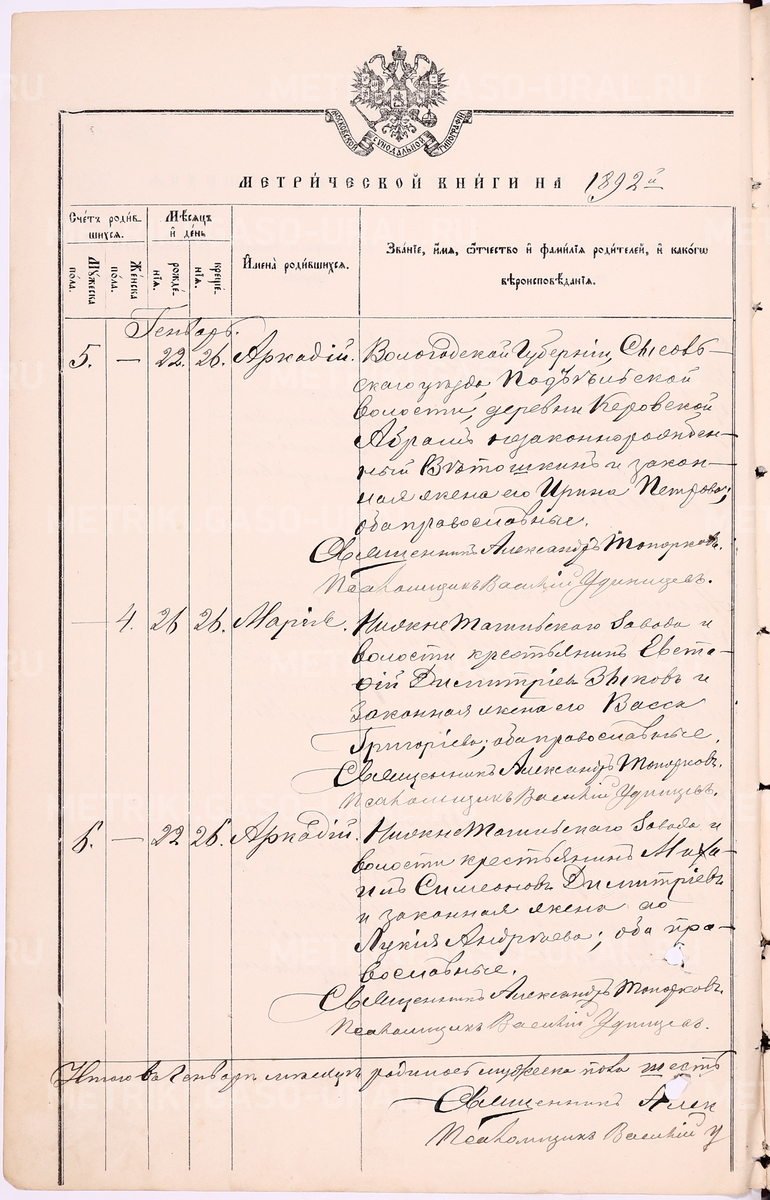 МОСКОВСКОЙ СѴНОДАЛЬНОЙ ТИПОГРАФІИ
МЕТРИ́ЧЕСКОЙ КНИ́ГИ НА 1892й
Сче́тъ роди́в-
шихся.
Му́жеска
по́ла.
Же́нска
по́ла.
Мѣ́сяцъ
и҆ де́нь
рожде́-
нїя.
креще́-
нїя.
И҆мена̀ роди́вшихся.
Зва́нїе, и҆́мя, ѻ҆́тчество и҆ фами́лїя роди́телей, и҆ како́гѡ
вѣроисповѣ́данїя.
Генварь.
5. — 22. 26. Аркадій. Вологодской Губерніи, Сысоль-
скаго уѣзда, Подъельской
волости, деревни Керовской
Абрамъ незаконнорожден-
ный Вѣтошкинъ и закон-
ная жена его Ирина Петрова;
оба православные.
Священникъ Александръ Топорковъ.
Псаломщикъ Василій Удинцевъ.
— 4. 26 26. Марія. Нижне Тагильскаго Завода и
волости крестьянинъ Евста-
фій Димитріевъ Зыковъ и
законная жена его Васса
Григоріева; оба православные.
Священникъ Александръ Топорковъ.
Псаломщикъ Василій Удинцевъ.
6. — 22 26. Аркадій. Нижне Тагильскаго Завода и
волости крестьянинъ Миха-
илъ Симеоновъ Димитріевъ
и законная жена его
Лукія Андреева; оба пра-
вославные.
Священникъ Александръ Топорковъ.
Псаломщикъ Василій Удинцевъ.
Итого въ Генварѣ мѣсяцѣ родилось мужеска пола шесть
Священникъ Алек
Псаломщикъ Василій У
METRIKI.GASO-URAL.RU